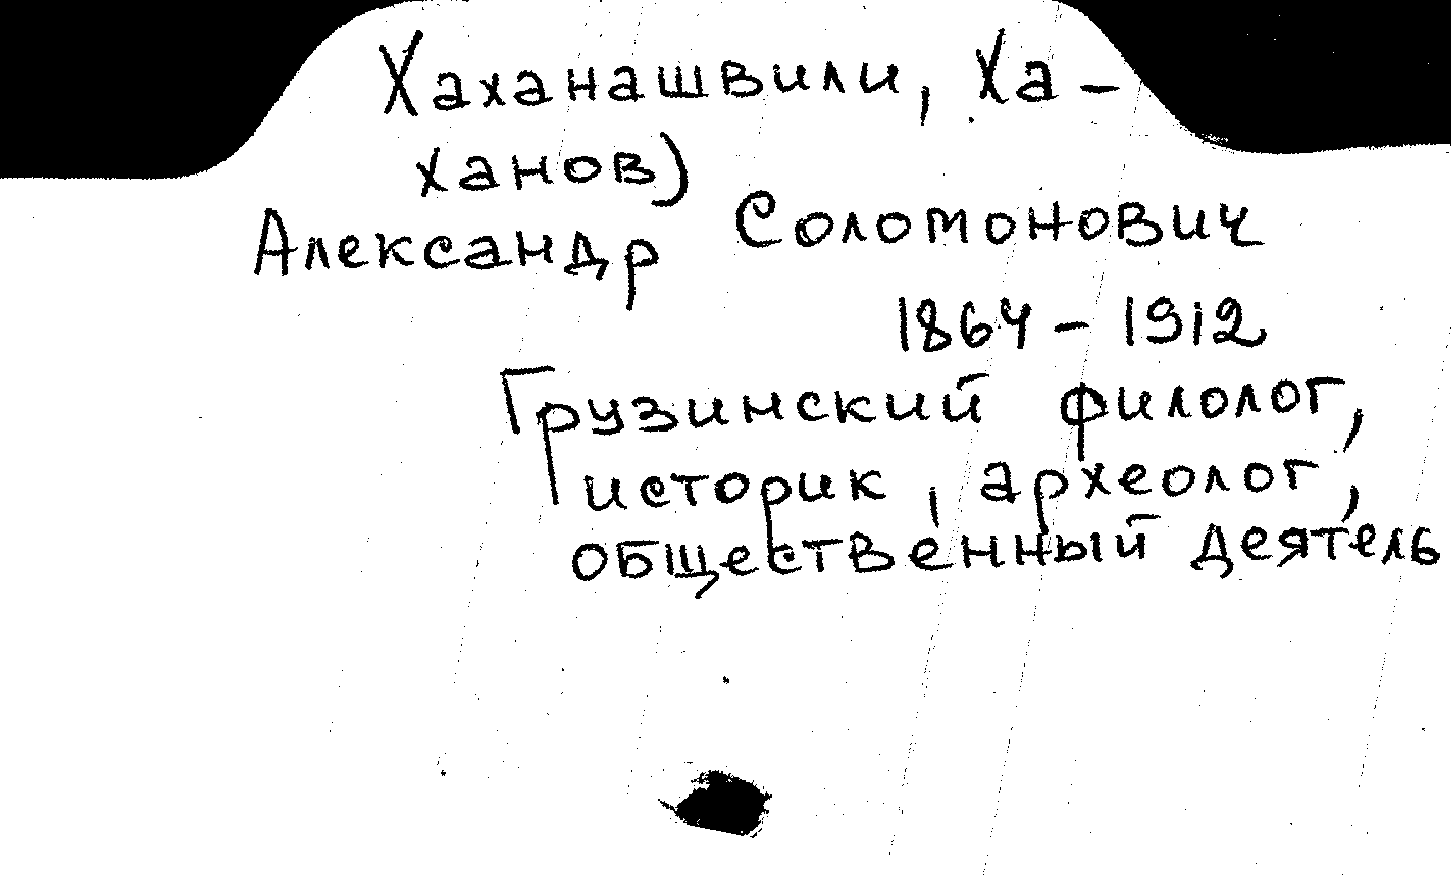 Хаханашвили, Ха-
ханов)
Александр Соломонович
1864-1912
Грузинский филолог,
историк, археолог,
общественный деятель